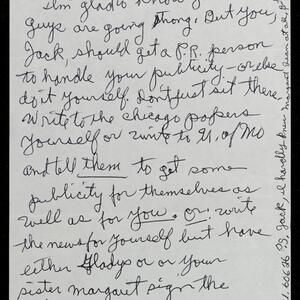 I'm glad to know y
guys are going strong. But you,
Jack, should get a P.R. person
to handle your publicity - or else
do it yourself. Don't just sit there.
Write to the Chicago papers
yourself or write to U. of Mo
and tell them to get some
publicity for themselves as
well as for you. Or write
the news for yourself but have
either Gladys or or your
sister Margaret sign the
60626
Jack, I hardly knew Margaret